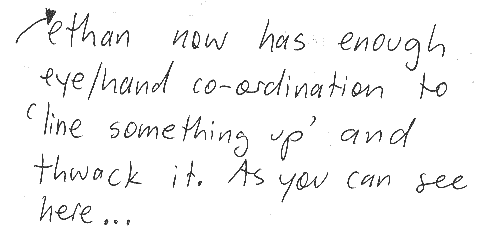 ethan now has enough
eye/hand co-ordination to
'line something up' and
thwack it. As you can see
here...